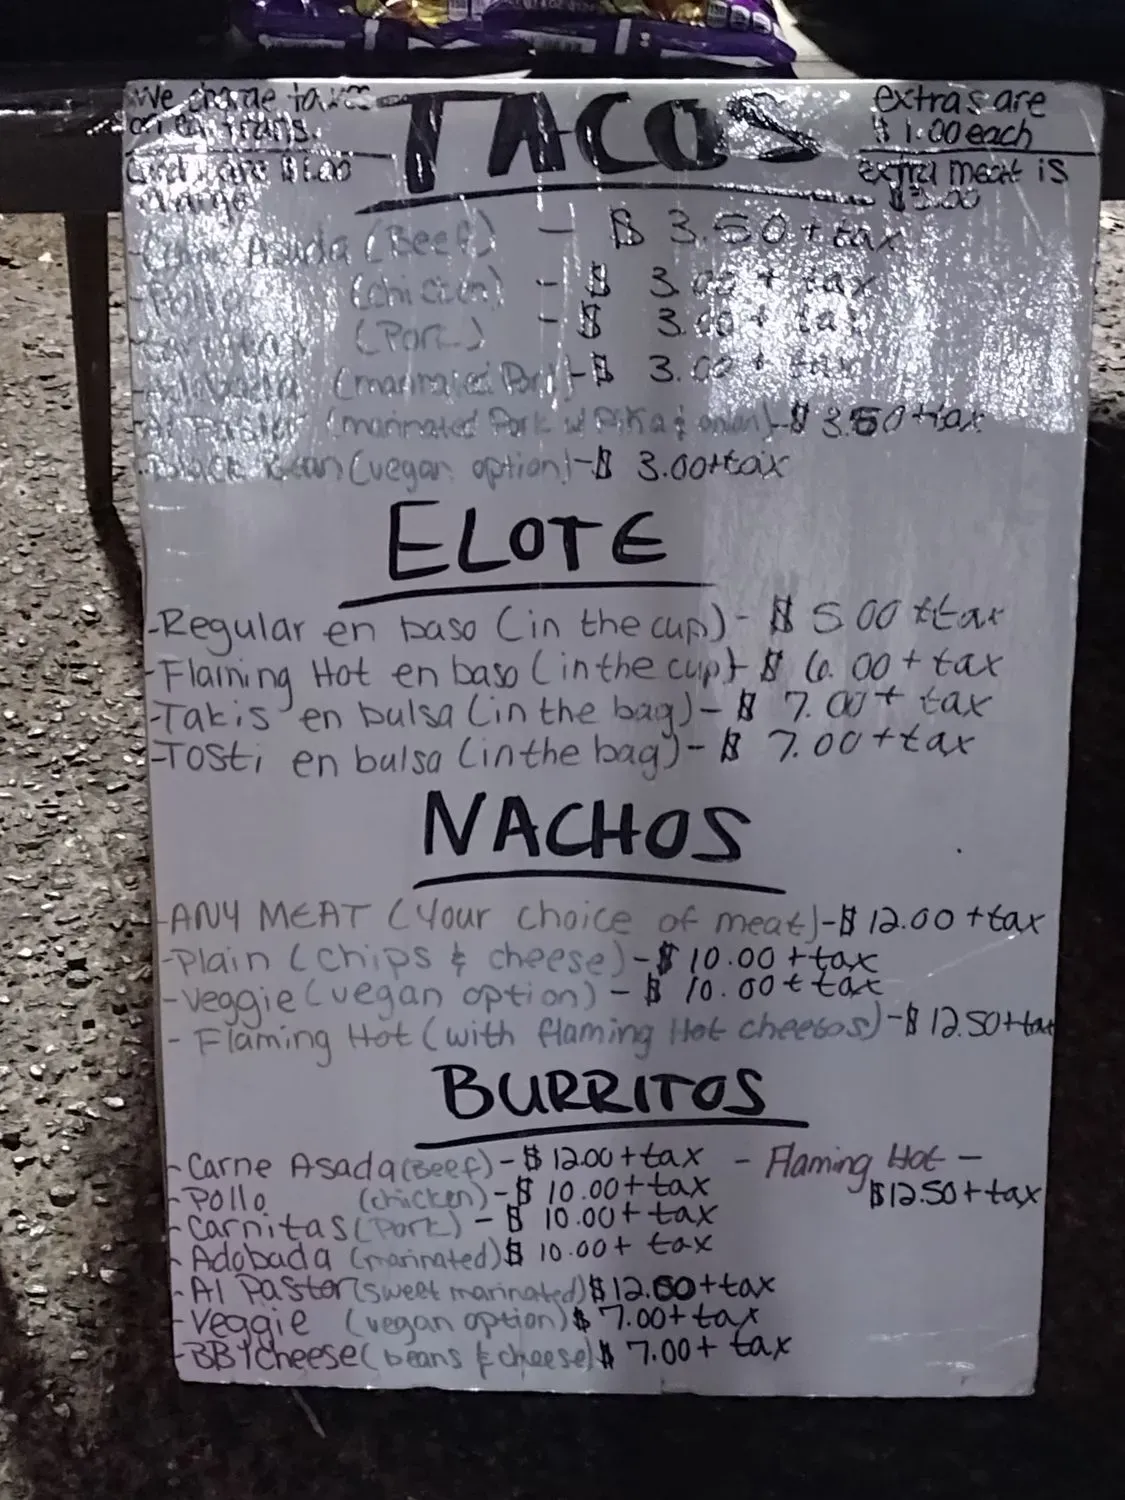 We charge taxes
on all trans.
Card are $1.00
charge
TACOS
extras are
$1.00 each
extra meat is
$3.00
-Carne Asada (Beef) - $ 3.50 + tax
-Pollo (chicken) - $ 3.00 + tax
-Carnitas (Pork) - $ 3.00 + tax
-Adobada (marinated Pork) - $ 3.00 + tax
-Al Pastor (marinated Pork w/ Piña & onion) - $ 3.50 + tax
-Black Bean (vegan option) - $ 3.00 + tax
ELOTE
-Regular en baso (in the cup) - $ 5.00 + tax
-Flaming Hot en baso (in the cup) - $ 6.00 + tax
-Takis en bulsa (in the bag) - $ 7.00 + tax
-Tosti en bulsa (in the bag) - $ 7.00 + tax
NACHOS
-ANY MEAT (Your choice of meat) - $ 12.00 + tax
-Plain (chips & cheese) - $ 10.00 + tax
-Veggie (vegan option) - $ 10.00 + tax
- Flaming Hot (with flaming Hot cheetos) - $ 12.50 + tax
BURRITOS
-Carne Asada (Beef) - $ 12.00 + tax
-Pollo (chicken) - $ 10.00 + tax
-Carnitas (Pork) - $ 10.00 + tax
-Adobada (marinated) $ 10.00 + tax
-Al Pastor (sweet marinated) $ 12.50 + tax
-Veggie (vegan option) $ 7.00 + tax
-BB & cheese (beans & cheese) $ 7.00 + tax
- Flaming Hot -
$12.50 + tax